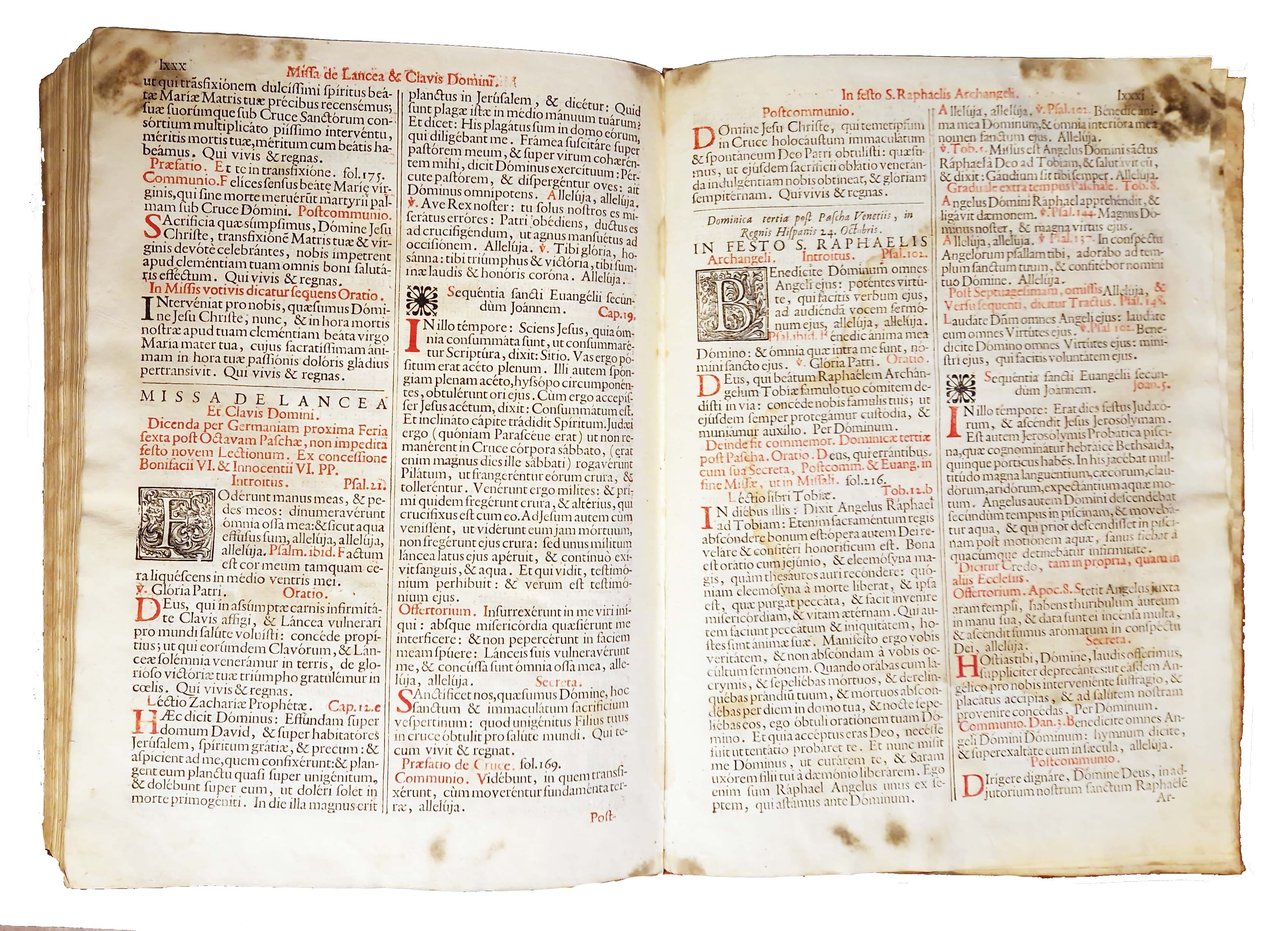 lxxx
Missa de Lancea & Clavis Domini.
ut qui trãsfixiónem dulcissimi spíritus beá-
tæ Mariæ Matris tuæ précibus recensémus;
suæ suorúmque sub Cruce Sanctórum con-
sórtium multiplicáto piíssimo intervéntu,
méritis mortis tuæ, méritum cum beátis ha-
beámus. Qui vivis & regnas.
Præfatio. Et te in transfixione. fol. 175.
Communio. Felíces sensus beátæ Maríę vír-
ginis, qui sine morte meruérũt martyrii pal-
mam sub Cruce Dómini. Postcommunio.
SAcrifícia quæ súmpsimus, Dómine Jesu
Christe, transfixiónẽ Matris tuæ & vír-
ginis devótè celebrántes, nobis ímpetrent
apud cleméntiam tuam omnis boni salutá-
ris efféctum. Qui vivis & regnas.
In Missis votivis dicatur sequens Oratio.
INtervéniat pro nobis, quæsumus Dómi-
ne Jesu Christe, nunc, & in hora mortis
nostræ apud tuam cleméntiam beáta virgo
María mater tua, cujus sacratíssimam áni-
mam in hora tuæ passiónis dolóris gládius
pertransívit. Qui vivis & regnas.
MISSA DE LANCEA
Et Clavis Domini.
Dicenda per Germaniam proxima Feria
sexta post Octavam Paschæ, non impedita
festo novem Lectionum. Ex concessione
Bonifacii VI. & Innocentii VI. PP.
Introitus. Psal. 21.
FOdérunt manus meas, & pe-
des meos: dinumeravérunt
ómnia ossa mea: & sicut aqua
effúsus sum, allelúja, allelúja,
allelúja. Psalm. ibid. Factum
est cor meum tamquam ce-
ra liquéscens in médio ventris mei.
℣. Glória Patri. Oratio.
DEus, qui in assúmptæ carnis infirmitá-
te Clavis affígi, & Láncea vulnerári
pro mundi salúte voluísti: concéde propí-
tius; ut qui eorúmdem Clavórum, & Lán-
ceæ solémnia venerámur in terris, de glo-
rióso victóriæ tuæ triúmpho gratulémur in
cœlis. Qui vivis & regnas.
Léctio Zachariæ Prophétæ. Cap. 12. e
HÆc dicit Dóminus: Effúndam super
domum David, & super habitatóres
Jerúsalem, spíritum grátiæ, & precum: &
aspícient ad me, quem confixérunt: & plan-
gent eum planctu quasi super unigénitum,
& dolébunt super eum, ut doléri solet in
morte primogéniti. In die illa magnus erit
planctus in Jerúsalem, & dicétur: Quid
sunt plagæ istæ in médio mánuum tuárum?
Et dicet: His plagátus sum in domo eórum,
qui diligébant me. Frámea suscitáre super
pastórem meum, & super virum cohærén-
tem mihi, dicit Dóminus exercítuum: Pér-
cute pastórem, & dispergéntur oves: ait
Dóminus omnípotens. Allelúja, allelúja.
℣. Ave Rex noster: tu solus nostros es mi-
serátus erróres: Patri obédiens, ductus es
ad crucifigéndum, ut agnus mansuétus ad
occisiónem. Allelúja. ℣. Tibi glória, ho-
sánna: tibi triúmphus & victória, tibi sum-
mæ laudis & honóris coróna. Allelúja.
Sequéntia sancti Euangélii secún-
dùm Joánnem. Cap. 19.
IN illo témpore: Sciens Jesus, quia óm-
nia consummáta sunt, ut consummaré-
tur Scriptúra, dixit: Sítio. Vas ergo pó-
situm erat acéto plenum. Illi autem spón-
giam plenam acéto, hyssópo circumponén-
tes, obtulérunt ori ejus. Cùm ergo accepís-
set Jesus acétum, dixit: Consummátum est.
Et inclináto cápite trádidit Spíritum. Judæi
ergo (quóniam Parascéve erat) ut non re-
manérent in Cruce córpora sábbato, (erat
enim magnus dies ille sábbati) rogavérunt
Pilátum, ut frangeréntur eórum crura, &
tolleréntur. Venérunt ergo mílites: & pri-
mi quidem fregérunt crura, & altérius, qui
crucifíxus est cum eo. Ad Jesum autem cùm
veníssent, ut vidérunt eum jam mórtuum,
non fregérunt ejus crura: sed unus mílitum
láncea latus ejus apéruit, & contínuò ex-
ívit sanguis, & aqua. Et qui vidit, testimó-
nium perhíbuit: & verum est testimó-
nium ejus.
Offertorium. Insurrexérunt in me viri iní-
qui: absque misericórdia quæsiérunt me
interfícere: & non pepercérunt in fáciem
meam spúere: Lánceis suis vulneravérunt
me, & concússa sunt ómnia ossa mea, alle-
lúja, allelúja. Secreta.
SAnctíficet nos, quæsumus Dómine, hoc
sanctum & immaculátum sacrifícium
vespertínum: quod unigénitus Fílius tuus
in cruce óbtulit pro salúte mundi. Qui te-
cum vivit & regnat.
Præfatio de Cruce. fol. 169.
Communio. Vidébunt, in quem transfi-
xérunt, cùm moveréntur fundaménta ter-
ræ, allelúja.
Post-
In festo S. Raphaelis Archangeli. lxxxi
Postcommunio.
DOmine Jesu Christe, qui temetípsum
in Cruce holocáustum immaculátum
& spontáneum Deo Patri obtulísti: quæsu-
mus, ut ejúsdem sacrifícii oblátio veneran-
da indulgéntiam nobis obtíneat, & glóriam
sempitérnam. Qui vivis & regnas.
Dominica tertia post Pascha Venetiis, in
Regnis Hispaniæ 24. Octobris.
IN FESTO S. RAPHAELIS
Archangeli. Introitus. Psal. 102.
BEnedícite Dóminum omnes
Angeli ejus: poténtes virtú-
te, qui fácitis verbum ejus,
ad audiéndã vocem sermó-
num ejus, allelúja, allelúja.
Psal. ibid. Bénedic ánima mea
Dómino: & ómnia quæ intra me sunt, nó-
mini sancto ejus. ℣. Glória Patri. Oratio.
DEus, qui beátum Raphaélem Archán-
gelum Tobíæ fámulo tuo cómitem de-
dísti in via: concéde nobis fámulis tuis; ut
ejúsdem semper protegámur custódia, &
muniámur auxílio. Per Dóminum.
Deinde fit commemor. Dominicæ tertiæ
post Pascha. Oratio. Deus, qui errantibus.
cum sua Secreta, Postcomm. & Euang. in
fine Missæ, ut in Missali. fol. 216.
Léctio libri Tobíæ. Tob. 12. b
IN diébus illis: Dixit Angelus Ráphaël
ad Tobíam: Etenim sacraméntum regis
abscóndere bonum est: ópera autem Dei re-
veláre & confitéri honoríficum est. Bona
est orátio cum jejúnio, & eleemósyna ma-
gis, quàm thesáuros auri recóndere: quó-
niam eleemósyna à morte líberat, & ipsa
est, quæ purgat peccáta, & facit inveníre
misericórdiam, & vitam ætérnam. Qui au-
tem fáciunt peccátum & iniquitátem, ho-
stes sunt ánimæ suæ. Manifésto ergo vobis
veritátem, & non abscóndam à vobis oc-
cúltum sermónem. Quando orábas cum lá-
crymis, & sepeliébas mórtuos, & derelin-
québas prándium tuum, & mórtuos abscon-
débas per diem in domo tua, & nocte sepe-
liébas eos, ego óbtuli oratiónem tuam Dó-
mino. Et quia accéptus eras Deo, necésse
fuit ut tentátio probáret te. Et nunc misit
me Dóminus, ut curárem te, & Saram
uxórem fílii tui à dæmónio liberárem. Ego
enim sum Ráphael Angelus unus ex se-
ptem, qui astámus ante Dóminum.
Allelúja, allelúja. ℣. Psal. 102. Bénedic áni-
ma mea Dóminum, & ómnia interióra mea
nomen sanctum ejus. Allelúja.
℣. Tob. 5. Missus est Angelus Dómini sãctus
Ráphaël à Deo ad Tobíam, & salutávit eũ,
& dixit: Gáudium sit tibi semper. Allelúja.
Graduale extra tempus Paschale. Tob. 8.
Angelus Dómini Ráphael apprehéndit, &
ligávit dæmonem. ℣. Psal. 144. Magnus Dó-
minus noster, & magna virtus ejus.
Allelúja, allelúja. ℣. Psal. 137. In conspéctu
Angelórum psallam tibi, adorábo ad tem-
plum sanctum tuum, & confitébor nómini
tuo Dómine. Allelúja.
Post Septuagesimam, omissis Allelúja, &
Versu sequenti, dicitur Tractus. Psal. 148.
Laudáte Dñm omnes Angeli ejus: laudáte
eum omnes Virtútes ejus. ℣. Psal. 102. Bene-
dícite Dómino omnes Virtútes ejus: miní-
stri ejus, qui fácitis voluntátem ejus.
Sequéntia sancti Euangélii secún-
dum Joánnem. Joan. 5.
IN illo témpore: Erat dies festus Judæó-
rum, & ascéndit Jesus Jerosólymam.
Est autem Jerosólymis Probática piscí-
na, quæ cognominátur hebráicè Bethsáida,
quinque pórticus habens. In his jacébat mul-
titúdo magna languéntium, cæcórum, clau-
dórum, aridórum, expectántium aquæ mo-
tum. Angelus autem Dómini descendébat
secúndum tempus in piscínam, & movebá-
tur aqua, & qui prior descendísset in piscí-
nam post motiónem aquæ, sanus fiébat à
quacúmque detinebátur infirmitáte.
Dicitur Credo, tam in propria, quam in
aliis Ecclesiis.
Offertorium. Apoc. 8. Stetit Angelus juxta
aram templi, habens thuríbulum áureum
in manu sua, & data sunt ei incénsa multa,
& ascéndit fumus arómatum in conspéctu
Dei, allelúja. Secreta.
HOstias tibi, Dómine, laudis offérimus,
supplíciter deprecántes: ut easdem An-
gélico pro nobis interveniénte suffrágio, &
placátus accípias, & ad salútem nostram
proveníre concédas. Per Dóminum.
Communio. Dan. 3. Benedícite omnes An-
geli Dómini Dóminum: hymnum dícite,
& superexaltáte eum in sæcula, allelúja.
Postcommunio.
DIrígere dignáre, Dómine Deus, in ad-
jutórium nostrum sanctum Raphaélé
Ar-